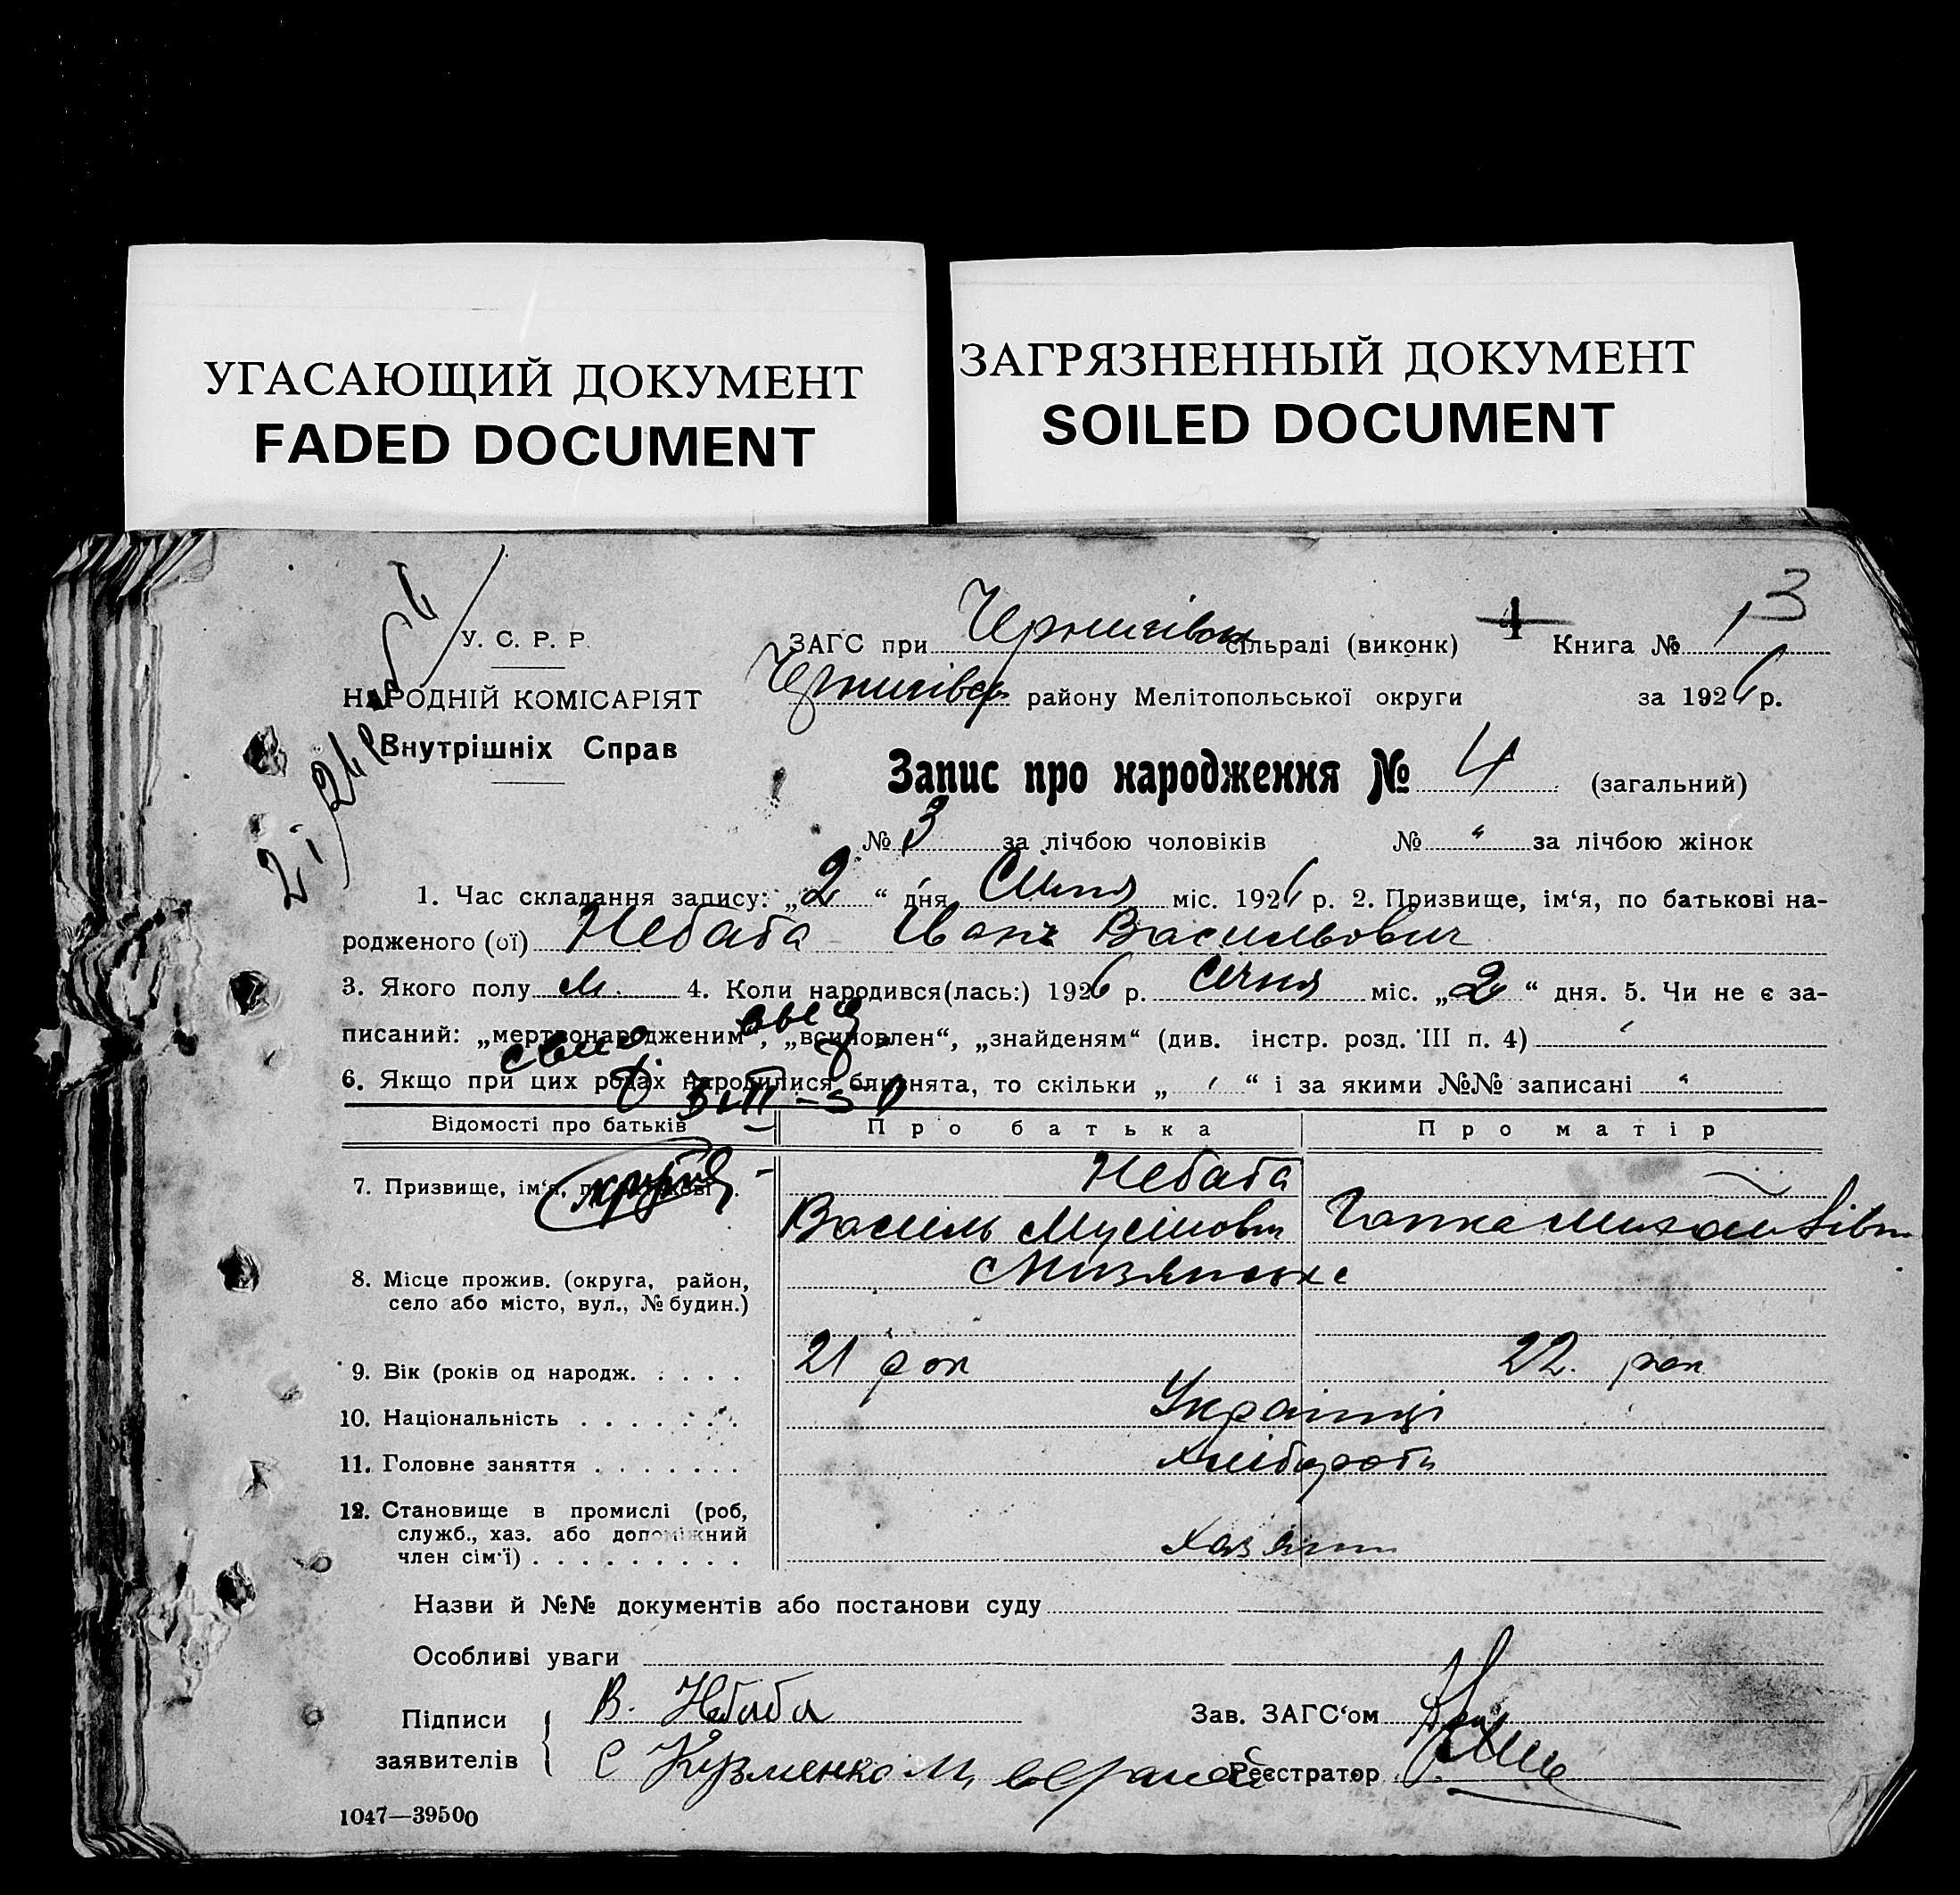 УГАСАЮЩИЙ ДОКУМЕНТ
FADED DOCUMENT
ЗАГРЯЗНЕННЫЙ ДОКУМЕНТ
SOILED DOCUMENT
У. С. Р. Р.
НАРОДНІЙ КОМІСАРІЯТ
Внутрішніх Справ
ЗАГС при Чернигівск сільраді (виконк) 4 Книга № 1 3
Чернигівск району Мелітопольської округи за 1926 р.
Запис про народження № 4 (загальний)
№ 3 за лічбою чоловіків № " за лічбою жінок
1. Час складання запису: „2“ дня Січня міс. 1926 р. 2. Призвище, ім‘я, по батькові на-
родженого (ої) Небаба Іван Васильович
3. Якого полу м. 4. Коли народився(лась:) 1926 р. Січня міс. „2“ дня. 5. Чи не є за-
писаний: „мертвонародженим“, „всиновлен“, „знайденям“ (див. інстр. розд. III п. 4)
6. Якщо при цих родах народилися близнята, то скільки „ “ і за якими №№ записані "
Відомості про батьків Про батька Про матір
7. Призвище, ім‘я, по батькові Небаба
Василь Мусійович Гапка Михайлівн
8. Місце прожив. (округа, район,
село або місто, вул., № будин.)
9. Вік (років од народж. 21 рок 22. рок
10. Національність Українці
11. Головне заняття Хлібороби
12. Становище в промислі (роб,
служб., хаз. або допоміжний
член сім‘ї) Хазяїн
Назви й №№ документів або постанови суду
Особливі уваги
Підписи заявителів В. Небаба Зав. ЗАГС‘ом
Кузменко Реєстратор
1047—39500